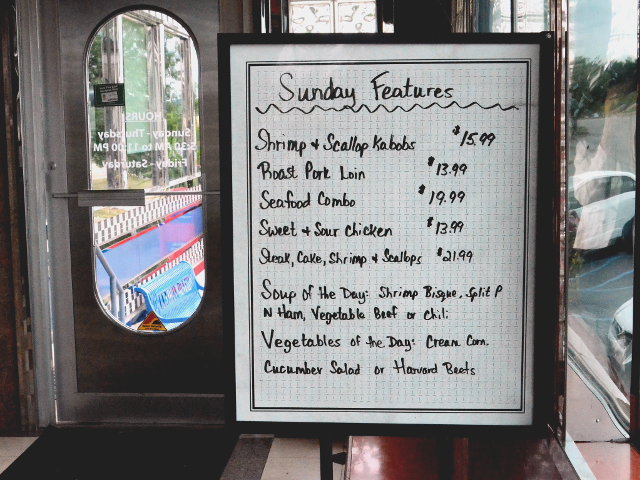 Sunday Features
Shrimp & Scallop Kabobs $15.99
Roast Pork Loin $13.99
Seafood Combo $19.99
Sweet & Sour Chicken $13.99
Steak, Cake, Shrimp & Scallops $21.99
Soup of the Day: Shrimp Bisque, Split P
N Ham, Vegetable Beef or Chili
Vegetables of the Day: Cream Corn,
Cucumber Salad or Harvard Beets
HOURS
Sunday - Thursday
5:30 AM to 11:00 PM
Friday - Saturday